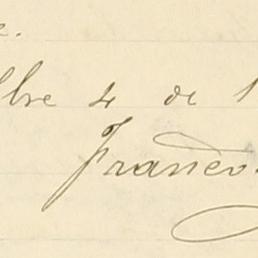 e.
bre 4 de 1
Franco.